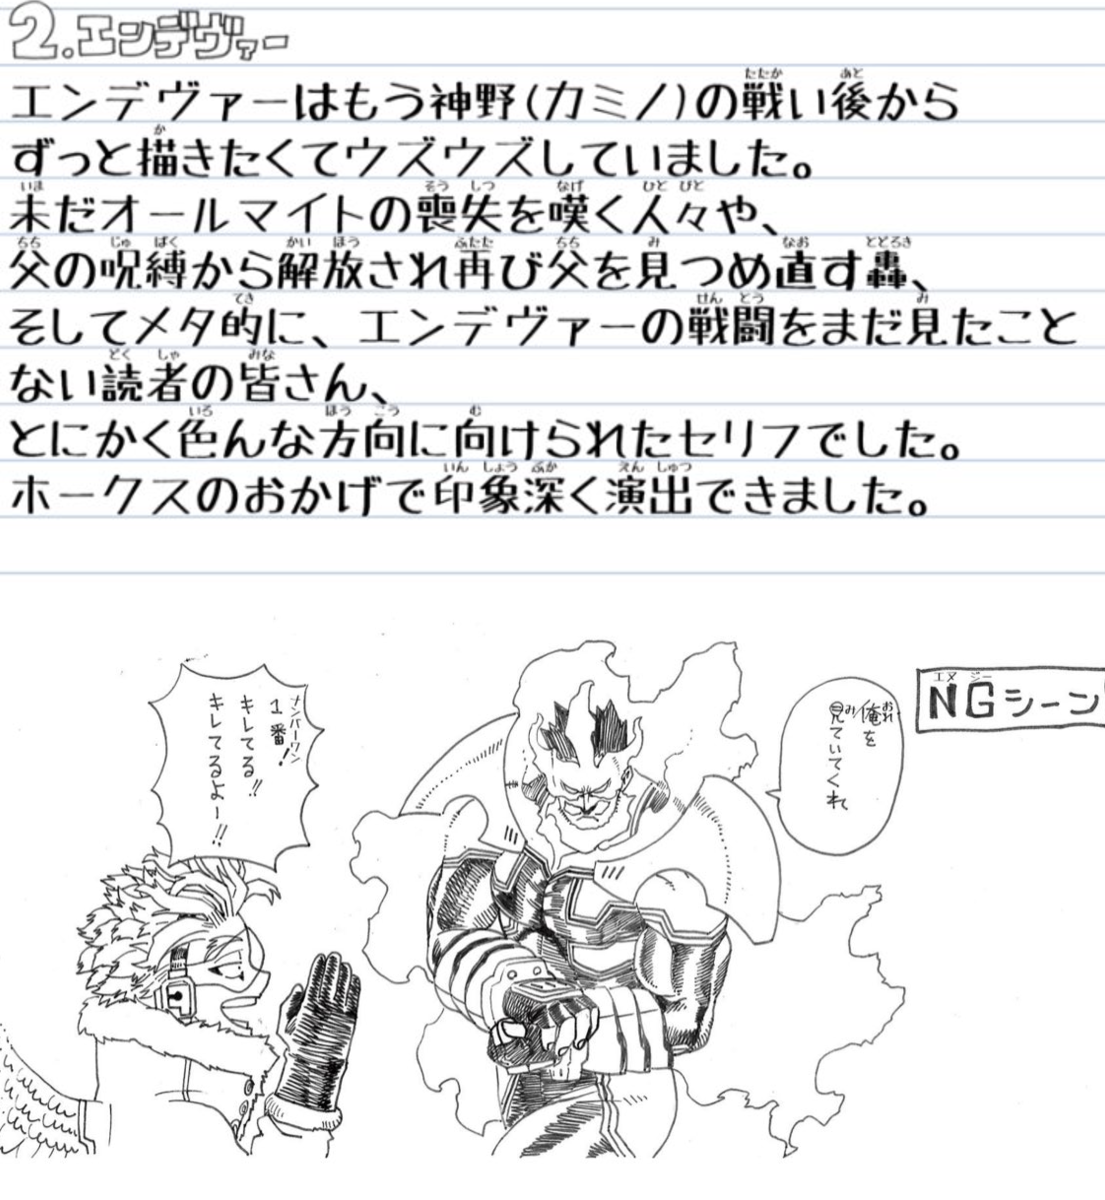 2.エンデヴァー
エンデヴァーはもう神野(カミノ)の戦い後から
ずっと描きたくてウズウズしていました。
未だオールマイトの喪失を嘆く人々や、
父の呪縛から解放され再び父を見つめ直す轟、
そしてメタ的に、エンデヴァーの戦闘をまだ見たこと
ない読者の皆さん、
とにかく色んな方向に向けられたセリフでした。
ホークスのおかげで印象深く演出できました。
NGシーン
俺を
見ていてくれ
1番!
キレてる!!
キレてるよー!!